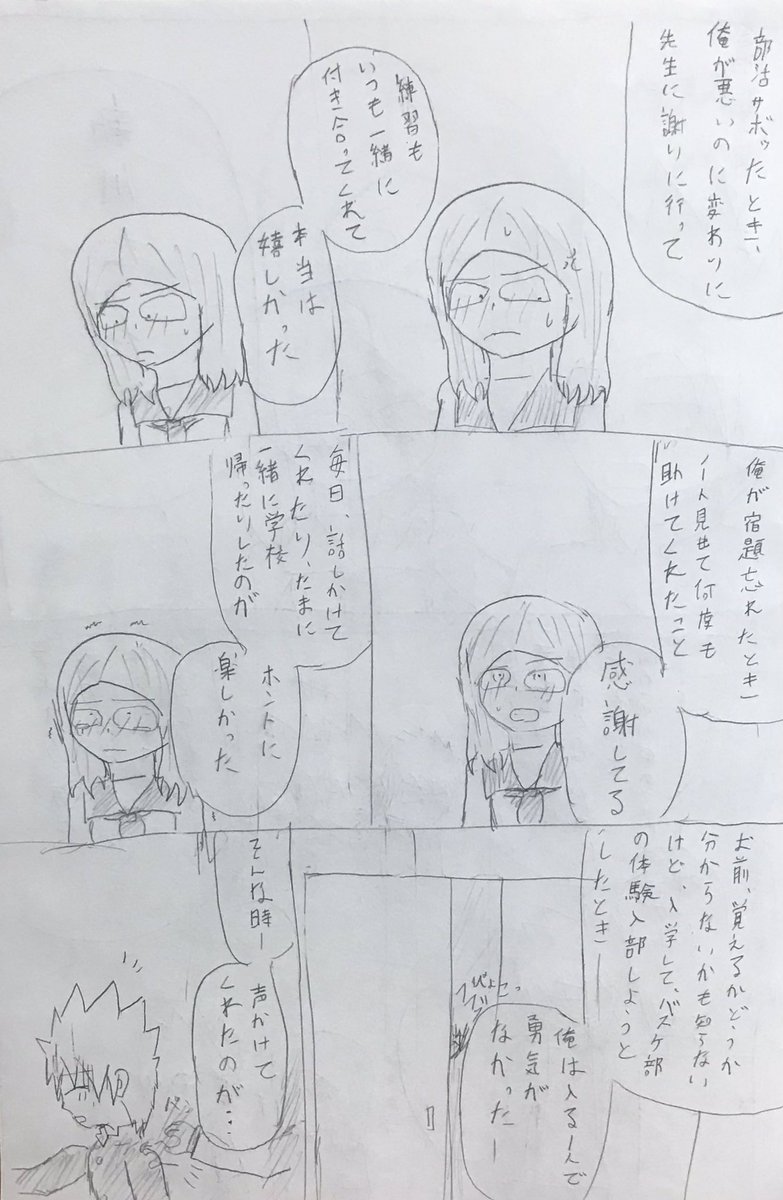 部活サボったとき、
俺が悪いのに変わりに
先生に謝りに行って
練習も
いつも一緒に
付き合ってくれて
本当は
嬉しかった
俺が宿題忘れたとき
ノート見せて何度も
助けてくれたこと
感謝してる
毎日、話しかけて
くれたり、たまに
一緒に学校
帰ったりしたのが
ホントに
楽しかった
お前、覚えるかどうか
分からないかも知らない
けど、入学して、バスケ部
の体験入部しようと
したとき―
俺は1人で
勇気が
なかった―
ぴょこっ
そんな時―
声かけて
くれたのが…